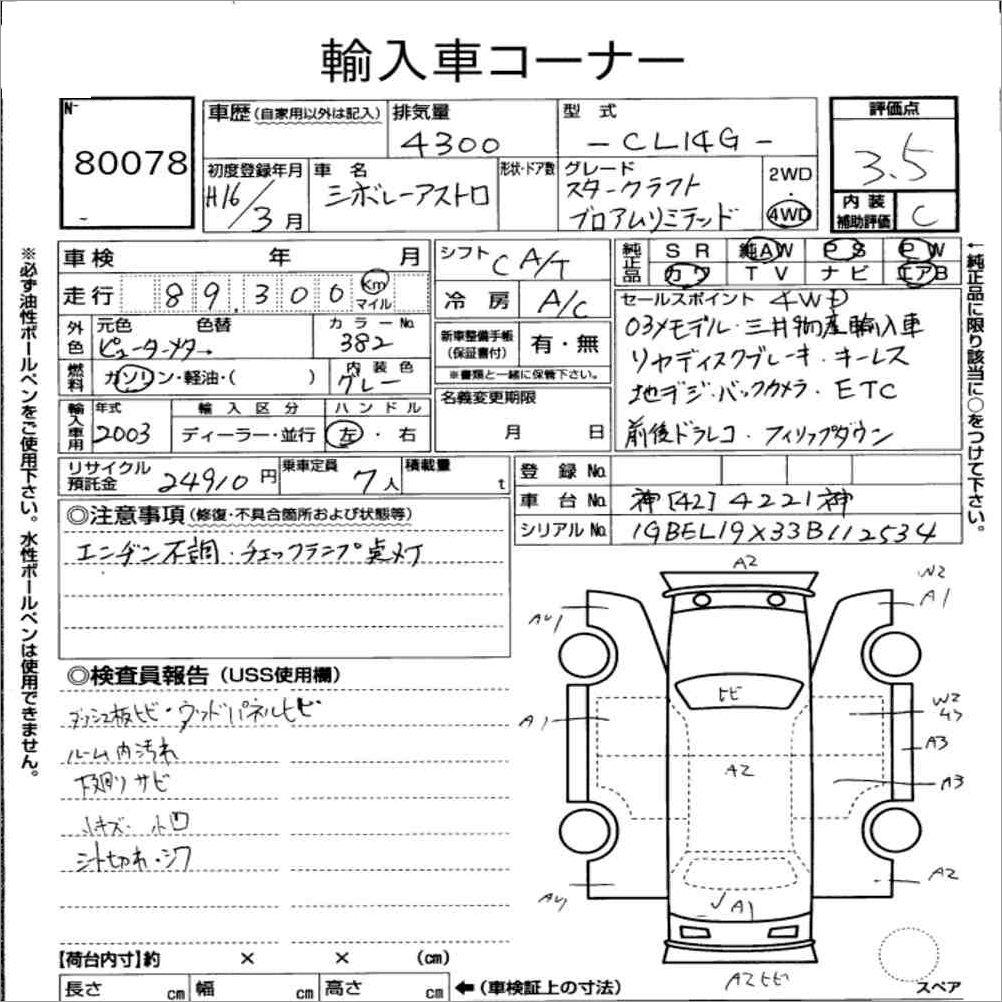 輸入車コーナー
N-
80078
車歴 (自家用以外は記入)
排気量
4300
型式
-CL14G-
評価点
3.5
初度登録年月
H16/3月
車名
シボレーアストロ
形状・ドア数
グレード
スタークラフト
ブロアムリミテッド
2WD
・
4WD
内装
補助評価
C
車検 年 月
シフト
CA/T
純正品
SR 純AW PS PW
カワ TV ナビ エアB
走行 89,300 Km
マイル
冷房 A/C
セールスポイント 4WD
03メモデル・三井物産輸入車
リヤディスクブレーキ・キーレス
地デジ・バックカメラ・ETC
前後ドラレコ・フィリップダウン
外色
元色 色替
ピューターメター
カラーNo.
382
新車整備手帳
(保証書付)
有・無
※書類と一緒に保管下さい。
燃料
ガソリン・軽油・( )
内装色
グレー
名義変更期限
月 日
輸入車用
年式
2003
輸入区分
ディーラー・並行
ハンドル
左・右
リサイクル
預託金
24910円
乗車定員
7人
積載量
t
登録No.
車台No. 神[42]4221神
シリアルNo. 1GBEL19X33B112534
◎注意事項(修復・不具合箇所および状態等)
エンヂン不調・チェックランプ点灯
◎検査員報告(USS使用欄)
ダッシュ板ヒビ・ウッドパネルヒビ
ルーム内汚れ
下廻りサビ
小キズ・小凹
シート切れ・シワ
【荷台内寸】約 × × (cm)
長さ cm 幅 cm 高さ cm ←(車検証上の寸法)
※必ず油性ボールペンをご使用下さい。水性ボールペンは使用できません。
←純正品に限り該当に○をつけて下さい。
A2
W2
A1
AU1
ヒビ
A1
W2
U3
A3
A2
A3
A2
AU1
A1
A2ヒビ
スペア